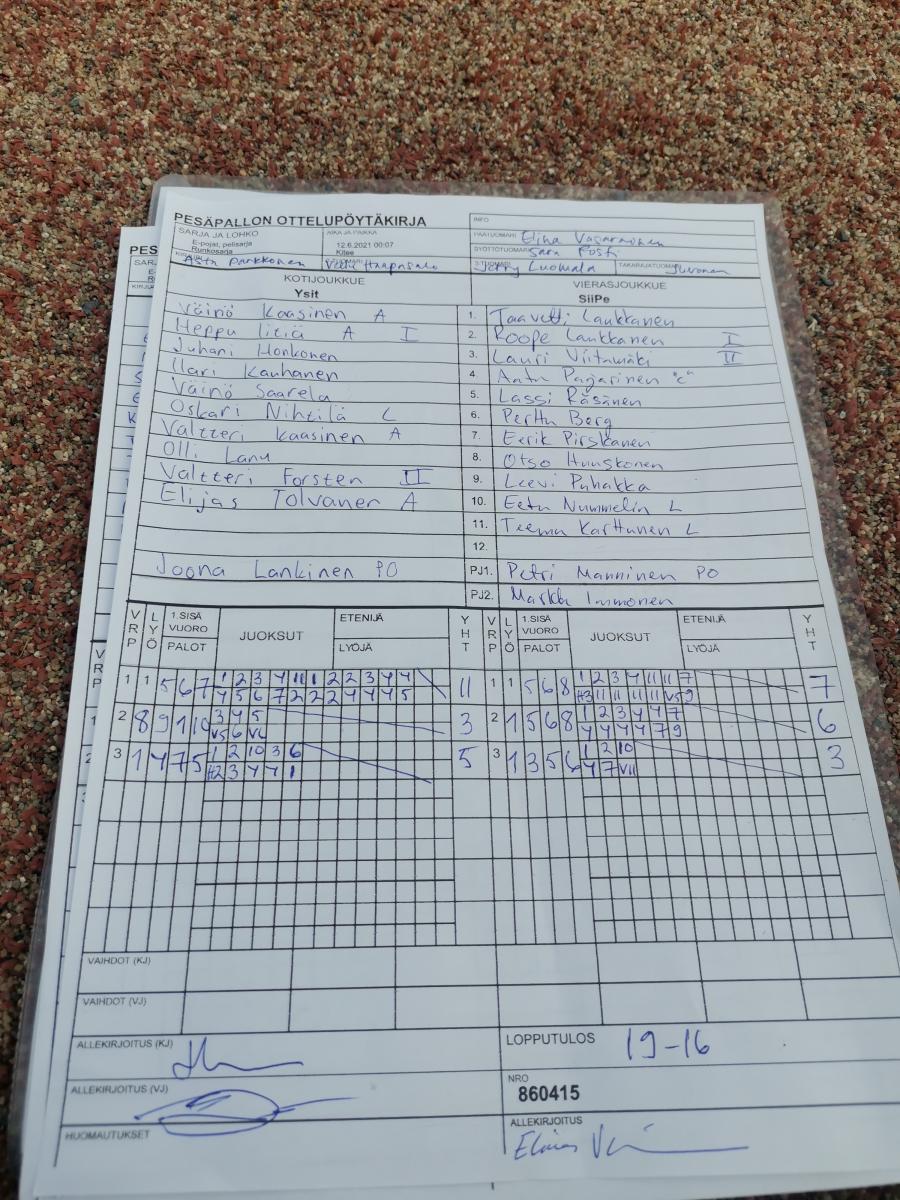 PESÄPALLON OTTELUPÖYTÄKIRJA
INFO
SARJA JA LOHKO
E-pojat, pelisarja
Runkosarja
AIKA JA PAIKKA
12.6.2021 00:07
Kitee
PÄÄTUOMARI Elina Vasaramonen
SYÖTTÖTUOMARI Sara Posti
KIRJURI Asta Parkkonen
Ville Haapasalo
3-TUOMARI Jerry Luomala
TAKARAJATUOMARI
KOTIJOUKKUE
Ysit
VIERASJOUKKUE
SiiPe
Väinö Kaasinen A
1. Taavetti Laukkanen
Heppu A I
2. Roope Laukkanen I
Juhani Honkonen
3. Lauri Viitamäki II
Ilari Kauhanen
4. Aatu Pajarinen "c"
Väinö Saarela
5. Lassi Räsänen
Oskari Nihtilä L
6. Perttu Berg
Valtteri Kaasinen A
7. Eerik Pirskanen
Olli Lanu
8. Otso Huuskonen
Valtteri Forsten II
9. Leevi Puhakka
Elijas Tolvanen A
10. Eetu Nummelin L
11. Teemu Karttunen L
12.
Joona Lankinen PO
PJ1. Petri Manninen PO
PJ2. Markku Immonen
VRP LYÖ 1.SISÄ VUORO PALOT JUOKSUT ETENIJÄ LYÖJÄ YHT VRP LYÖ 1.SISÄ VUORO PALOT JUOKSUT ETENIJÄ LYÖJÄ YHT
1 1 5 6 7 1 2 3 4 11 1 2 2 3 4 4 11 1 1 5 6 8 1 2 3 4 11 11 7 7
4 5 6 7 2 2 2 4 4 4 5 #3 11 11 11 11 V5 9
2 8 9 1 10 3 4 5 3 2 1 5 6 8 1 2 3 4 4 7 6
V5 6 V6 4 4 4 4 7 9
3 1 4 7 5 1 2 10 3 6 5 3 1 3 5 6 1 2 10 3
#2 3 4 4 1 4 7 VII
VAIHDOT (KJ)
VAIHDOT (VJ)
ALLEKIRJOITUS (KJ)
LOPPUTULOS 19-16
ALLEKIRJOITUS (VJ)
NRO
860415
HUOMAUTUKSET
ALLEKIRJOITUS